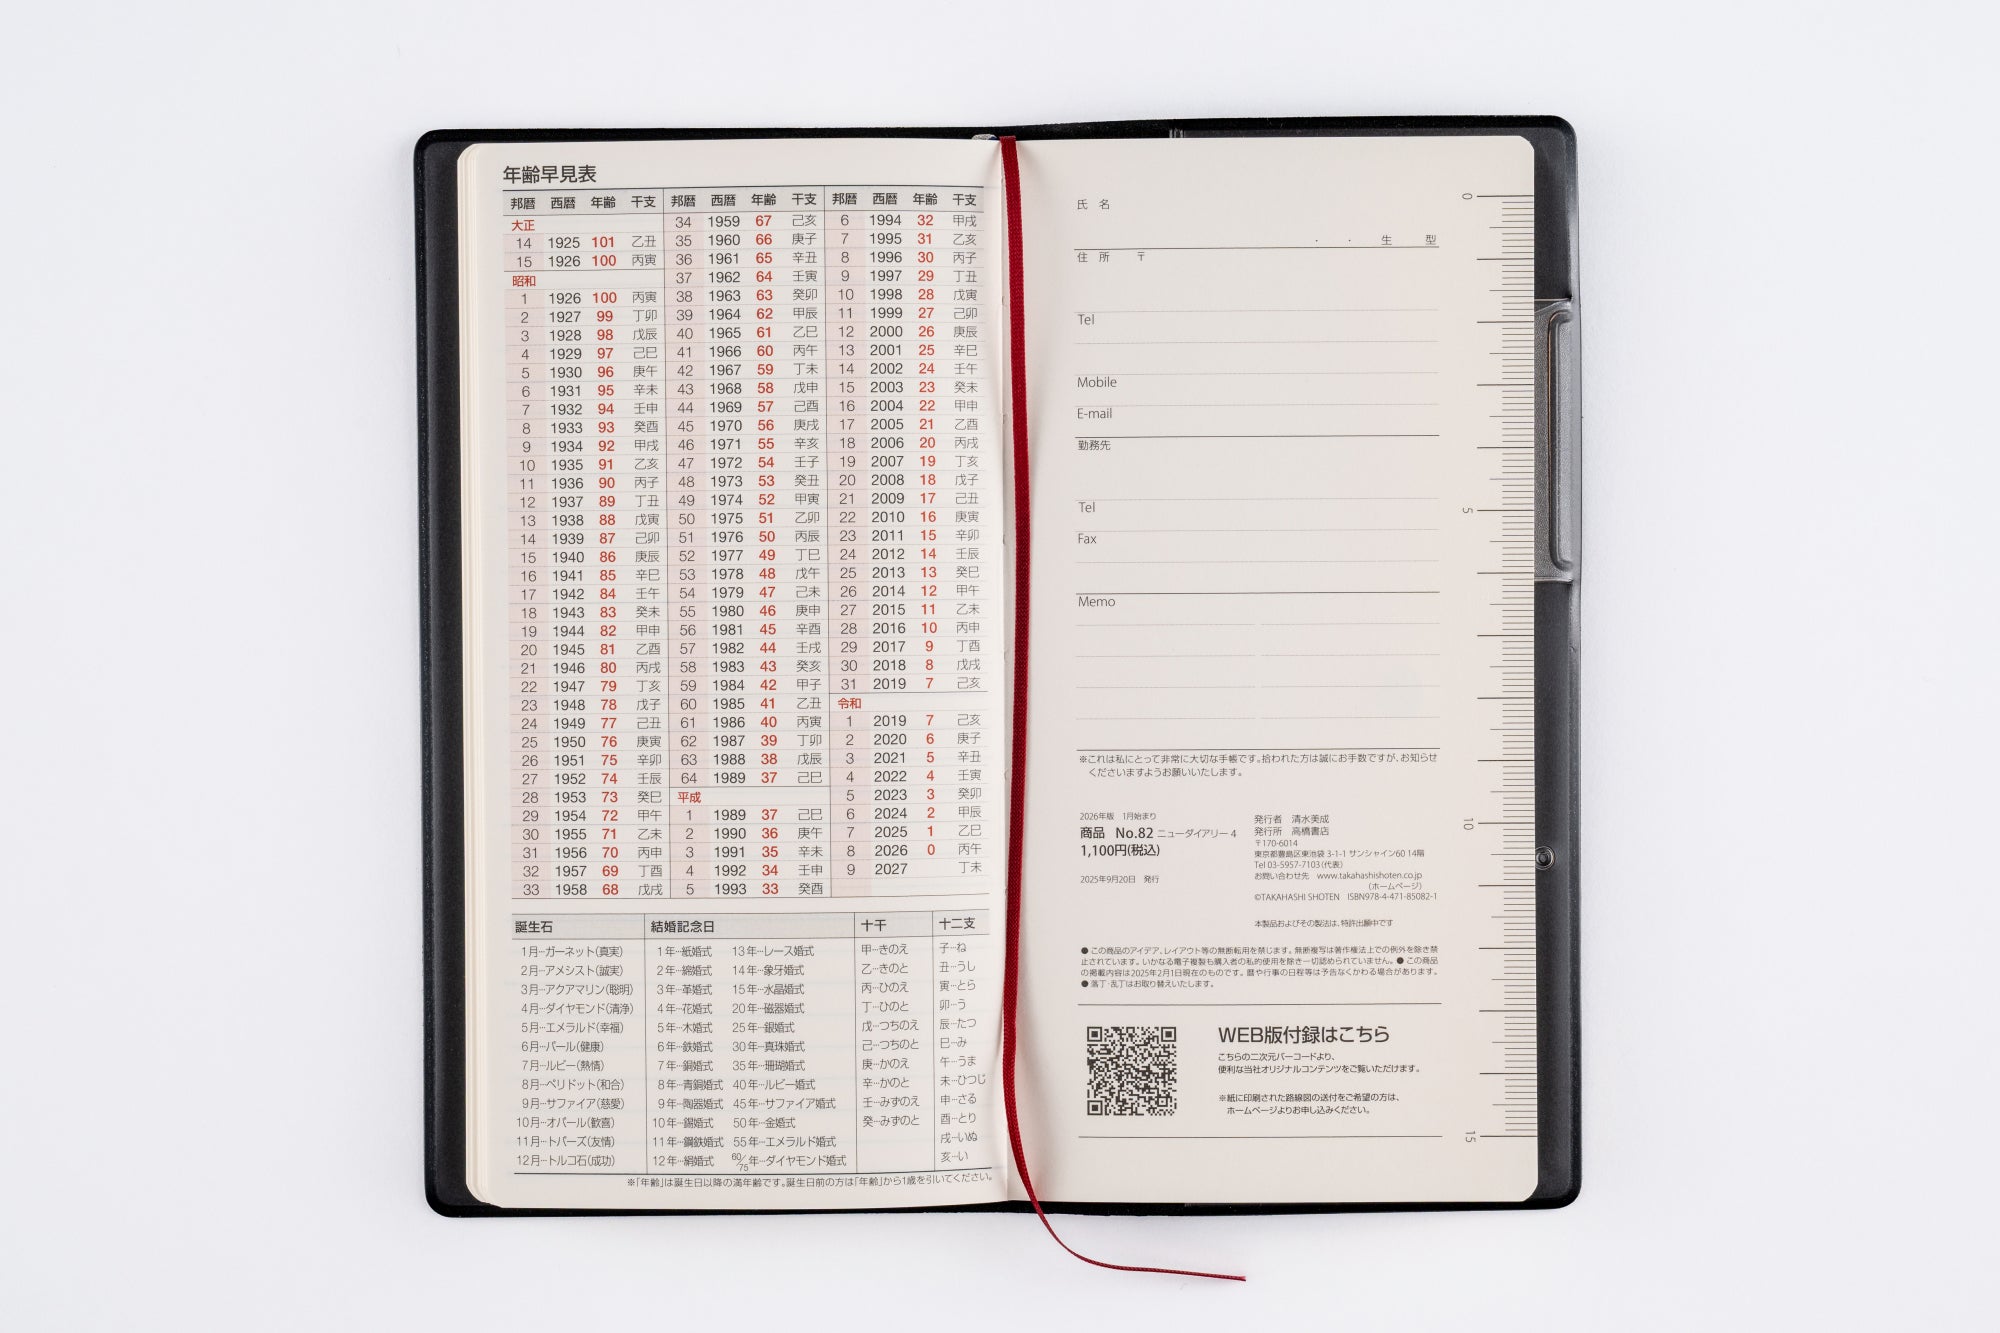 年齢早見表
邦暦 西暦 年齢 干支
大正
14 1925 101 乙丑
15 1926 100 丙寅
昭和
1 1926 100 丙寅
2 1927 99 丁卯
3 1928 98 戊辰
4 1929 97 己巳
5 1930 96 庚午
6 1931 95 辛未
7 1932 94 壬申
8 1933 93 癸酉
9 1934 92 甲戌
10 1935 91 乙亥
11 1936 90 丙子
12 1937 89 丁丑
13 1938 88 戊寅
14 1939 87 己卯
15 1940 86 庚辰
16 1941 85 辛巳
17 1942 84 壬午
18 1943 83 癸未
19 1944 82 甲申
20 1945 81 乙酉
21 1946 80 丙戌
22 1947 79 丁亥
23 1948 78 戊子
24 1949 77 己丑
25 1950 76 庚寅
26 1951 75 辛卯
27 1952 74 壬辰
28 1953 73 癸巳
29 1954 72 甲午
30 1955 71 乙未
31 1956 70 丙申
32 1957 69 丁酉
33 1958 68 戊戌
邦暦 西暦 年齢 干支
34 1959 67 己亥
35 1960 66 庚子
36 1961 65 辛丑
37 1962 64 壬寅
38 1963 63 癸卯
39 1964 62 甲辰
40 1965 61 乙巳
41 1966 60 丙午
42 1967 59 丁未
43 1968 58 戊申
44 1969 57 己酉
45 1970 56 庚戌
46 1971 55 辛亥
47 1972 54 壬子
48 1973 53 癸丑
49 1974 52 甲寅
50 1975 51 乙卯
51 1976 50 丙辰
52 1977 49 丁巳
53 1978 48 戊午
54 1979 47 己未
55 1980 46 庚申
56 1981 45 辛酉
57 1982 44 壬戌
58 1983 43 癸亥
59 1984 42 甲子
60 1985 41 乙丑
61 1986 40 丙寅
62 1987 39 丁卯
63 1988 38 戊辰
64 1989 37 己巳
平成
1 1989 37 己巳
2 1990 36 庚午
3 1991 35 辛未
4 1992 34 壬申
5 1993 33 癸酉
邦暦 西暦 年齢 干支
6 1994 32 甲戌
7 1995 31 乙亥
8 1996 30 丙子
9 1997 29 丁丑
10 1998 28 戊寅
11 1999 27 己卯
12 2000 26 庚辰
13 2001 25 辛巳
14 2002 24 壬午
15 2003 23 癸未
16 2004 22 甲申
17 2005 21 乙酉
18 2006 20 丙戌
19 2007 19 丁亥
20 2008 18 戊子
21 2009 17 己丑
22 2010 16 庚寅
23 2011 15 辛卯
24 2012 14 壬辰
25 2013 13 癸巳
26 2014 12 甲午
27 2015 11 乙未
28 2016 10 丙申
29 2017 9 丁酉
30 2018 8 戊戌
31 2019 7 己亥
令和
1 2019 7 己亥
2 2020 6 庚子
3 2021 5 辛丑
4 2022 4 壬寅
5 2023 3 癸卯
6 2024 2 甲辰
7 2025 1 乙巳
8 2026 0 丙午
9 2027 丁未
誕生石
1月…ガーネット(真実)
2月…アメシスト(誠実)
3月…アクアマリン(聡明)
4月…ダイヤモンド(清浄)
5月…エメラルド(幸福)
6月…パール(健康)
7月…ルビー(熱情)
8月…ペリドット(和合)
9月…サファイア(慈愛)
10月…オパール(歓喜)
11月…トパーズ(友情)
12月…トルコ石(成功)
結婚記念日
1年…紙婚式 13年…レース婚式
2年…綿婚式 14年…象牙婚式
3年…革婚式 15年…水晶婚式
4年…花婚式 20年…磁器婚式
5年…木婚式 25年…銀婚式
6年…鉄婚式 30年…真珠婚式
7年…銅婚式 35年…珊瑚婚式
8年…青銅婚式 40年…ルビー婚式
9年…陶器婚式 45年…サファイア婚式
10年…錫婚式 50年…金婚式
11年…鋼鉄婚式 55年…エメラルド婚式
12年…絹婚式 60/75年…ダイヤモンド婚式
十干
甲…きのえ
乙…きのと
丙…ひのえ
丁…ひのと
戊…つちのえ
己…つちのと
庚…かのえ
辛…かのと
壬…みずのえ
癸…みずのと
十二支
子…ね
丑…うし
寅…とら
卯…う
辰…たつ
巳…み
午…うま
未…ひつじ
申…さる
酉…とり
戌…いぬ
亥…い
※「年齢」は誕生日以降の満年齢です。誕生日前の方は「年齢」から1歳を引いてください。
氏 名
・ ・ 生 型
住 所 〒
Tel
Mobile
E-mail
勤務先
Tel
Fax
Memo
※これは私にとって非常に大切な手帳です。拾われた方は誠にお手数ですが、お知らせ
くださいますようお願いいたします。
2026年版 1月始まり
商品 No.82 ニューダイアリー 4
1,100円(税込)
2025年9月20日 発行
発行者 清水美成
発行所 高橋書店
〒170-6014
東京都豊島区東池袋 3-1-1 サンシャイン60 14階
Tel 03-5957-7103(代表)
お問い合わせ先 www.takahashishoten.co.jp
(ホームページ)
©TAKAHASHI SHOTEN ISBN978-4-471-85082-1
本製品およびその製法は、特許出願中です
● この商品のアイデア、レイアウト等の無断転用を禁じます。無断複写は著作権法上での例外を除き禁
止されています。いかなる電子複製も購入者の私的使用を除き一切認められていません。● この商品
の掲載内容は2025年2月1日現在のものです。暦や行事の日程等は予告なくかわる場合があります。
● 落丁・乱丁はお取り替えいたします。
WEB版付録はこちら
こちらの二次元バーコードより、
便利な当社オリジナルコンテンツをご覧いただけます。
※紙に印刷された路線図の送付をご希望の方は、
ホームページよりお申し込みください。
0
5
10
15